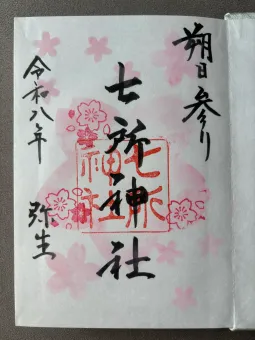 朔日参り
七所神社
七所
神社
令和八年 弥生